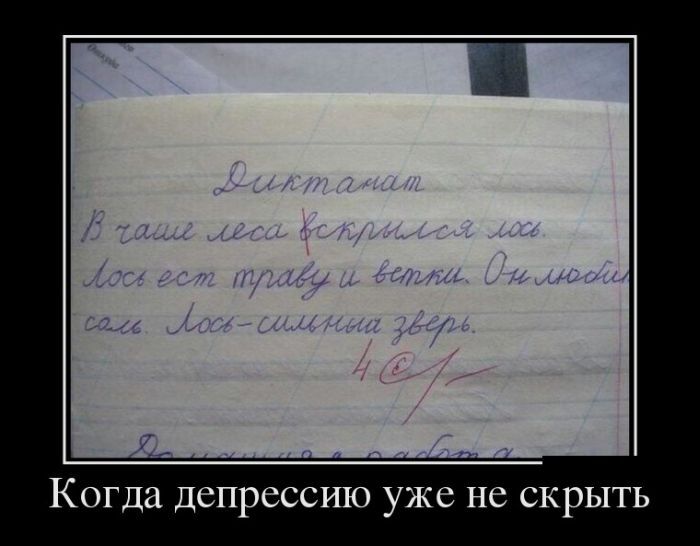 Диктанат
В чаше леса вскрылся лось.
Лось ест траву и ветки. Он любит
соль. Лось-сильный зверь.
4
Когда депрессию уже не скрыть